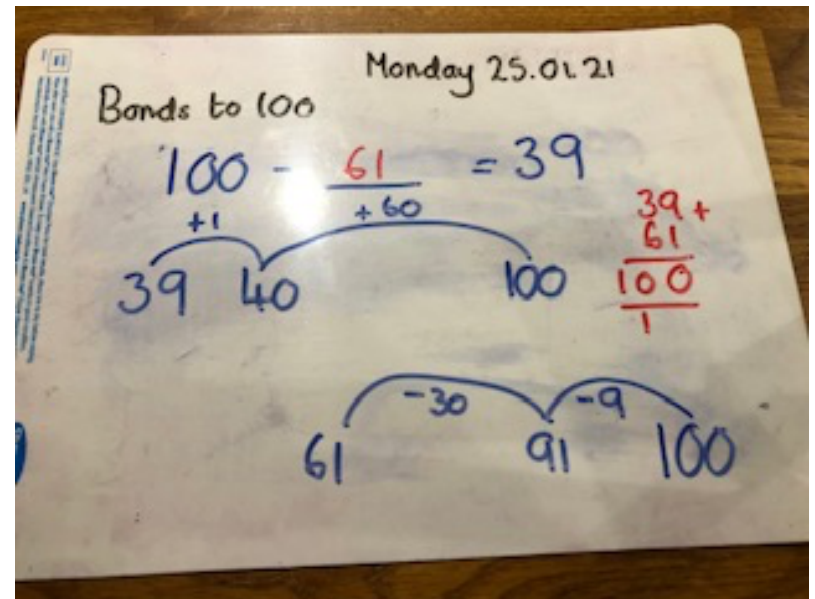 Monday 25.01.21
Bonds to 100
100 - 61 = 39
+1 +60
39 40 100
39 +
61
100
1
-30 -9
61 91 100